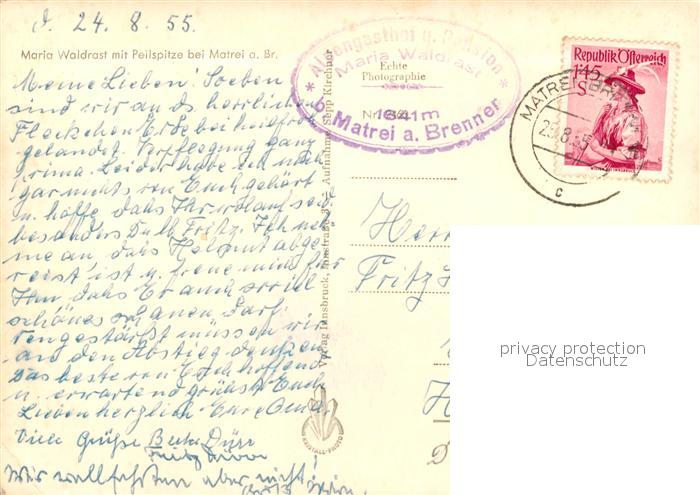 d. 24. 8. 55.
Maria Waldrast mit Peilspitze bei Matrei a. Br.
Meine Lieben! Soeben
sind wir an ds herrliche
Fleckchen Erde bei
gelandet. Verpflegung ganz
prima. Leider habe ich noch
gar nichts von Euch gehört
u. hoffe dass Ihr wohlauf seid
besonders Du lb. Fritz. Ich neh-
me an, dass Helmut abge-
reist ist u. freue mich für
Ihn, dass Er auch so viel
schönes schauen darf.
müssen wir
an den Abstieg denken
Das beste von Euch hoffend
u. erwartend grüsst Euch
Lieben herzlich Eure Oma
Viele Grüße Dürr
Wir wallfahrten aber nicht!
Verlag Innsbruck, Innstraße Aufnahme Sepp Kirchner
Echte
Photographie
Nr.
Alpengasthof u. Pension
Maria Waldrast
1641m
b. Matrei a. Brenner
Republik Österreich
1.45
S
MATREI
c
Herrn
Fritz
KRISTALL-PHOTO
privacy protection
Datenschutz